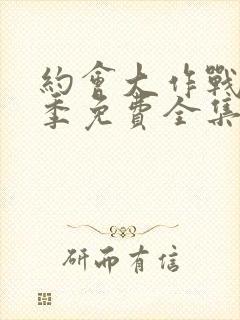 約會大作戰
季免費全集
研而有信